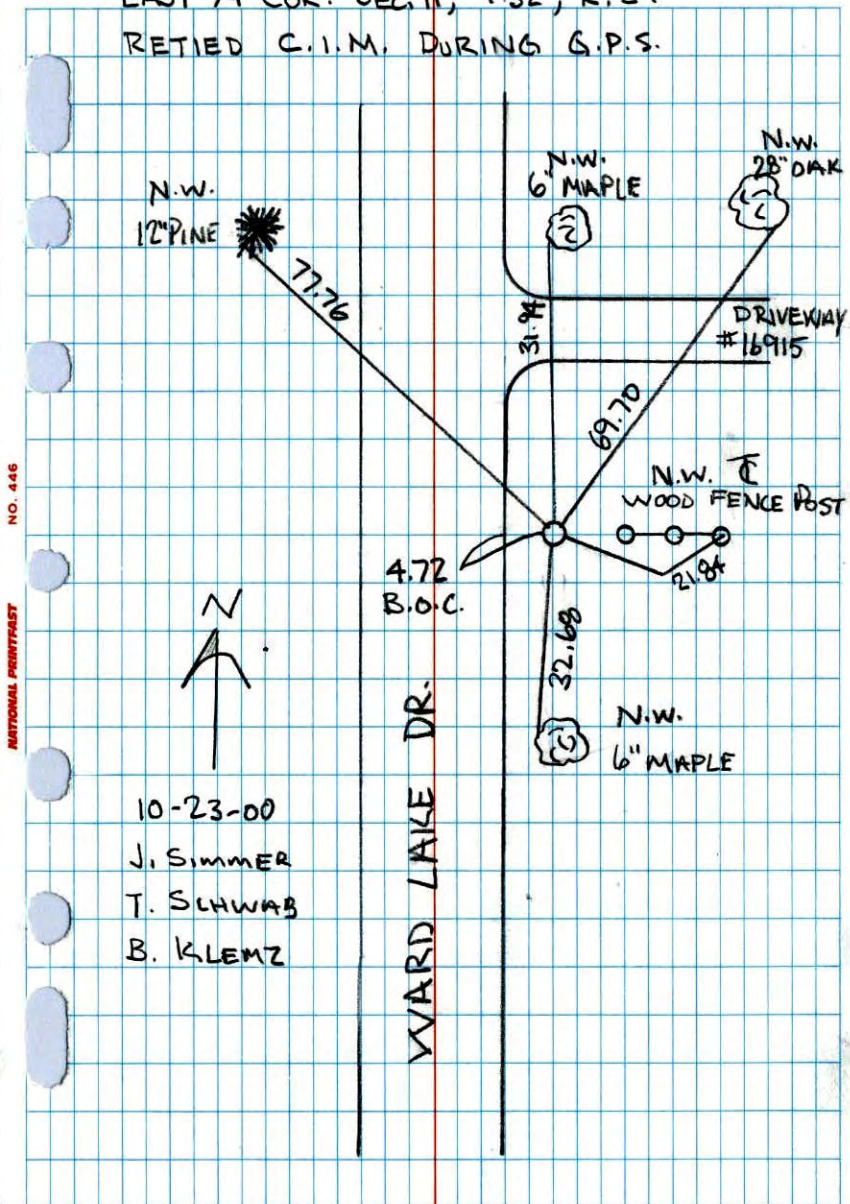 RETIED C.I.M. DURING G.P.S.
N.W.
12" PINE
N.W.
6" MAPLE
N.W.
28" OAK
77.76
31.94
DRIVEWAY
#16915
69.70
N.W.
WOOD FENCE POST
21.84
4.72
B.O.C.
32.68
N
N.W.
6" MAPLE
WARD LAKE DR.
10-23-00
J. SIMMER
T. SCHWAB
B. KLEMZ
NO. 446
NATIONAL PRINTFAST